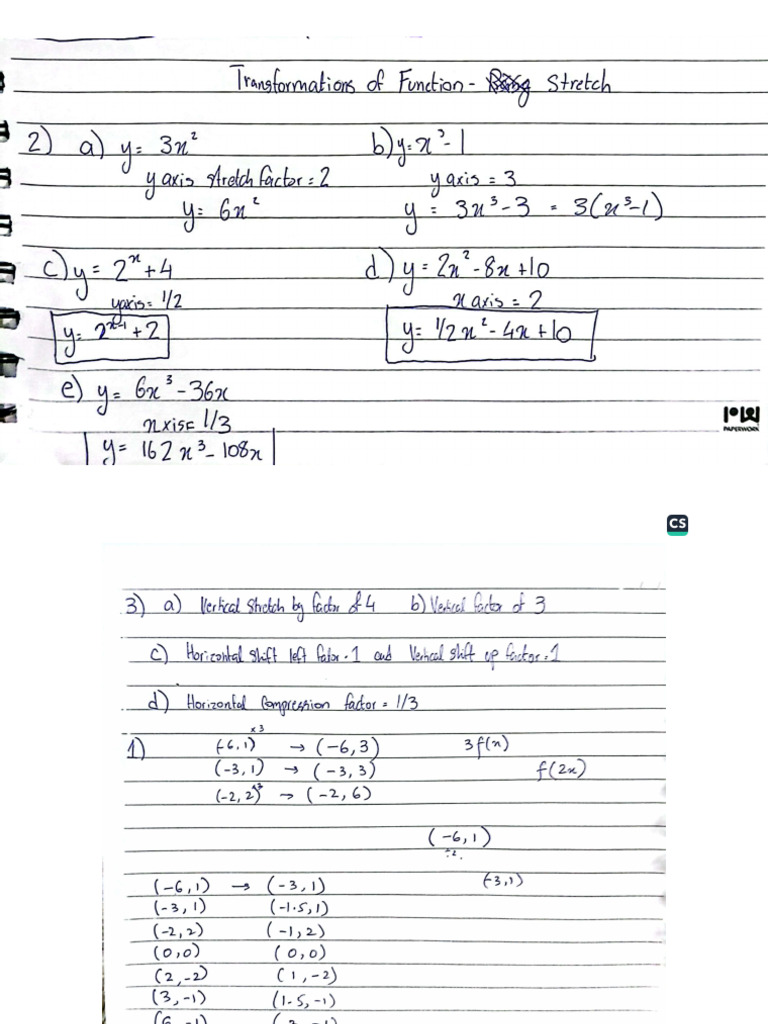 Transformations of Function - Stretch
2) a) y = 3x² b) y = x³ - 1
y axis stretch factor = 2 y axis = 3
y = 6x² y = 3x³ - 3 = 3(x³-1)
c) y = 2ˣ + 4 d) y = 2x² - 8x + 10
yaxis = 1/2 x axis = 2
y = 2ˣ⁻¹ + 2 y = 1/2 x² - 4x + 10
e) y = 6x³ - 36x
xxis = 1/3
y = 162x³ - 108x
PAPERWORK
CS
3) a) Vertical stretch by factor of 4 b) Vertical factor of 3
c) Horizontal shift left fator = 1 and Vertical shift up factor = 1
d) Horizontal Compression factor = 1/3
×3
1) (-6,1) → (-6,3) 3f(x)
(-3,1) → (-3,3) f(2x)
(-2,2)×3 → (-2,6)
(-6,1)
÷2
(-6,1) → (-3,1) (-3,1)
(-3,1) (-1.5,1)
(-2,2) (-1,2)
(0,0) (0,0)
(2,-2) (1,-2)
(3,-1) (1.5,-1)
(6,-1) (3,-1)